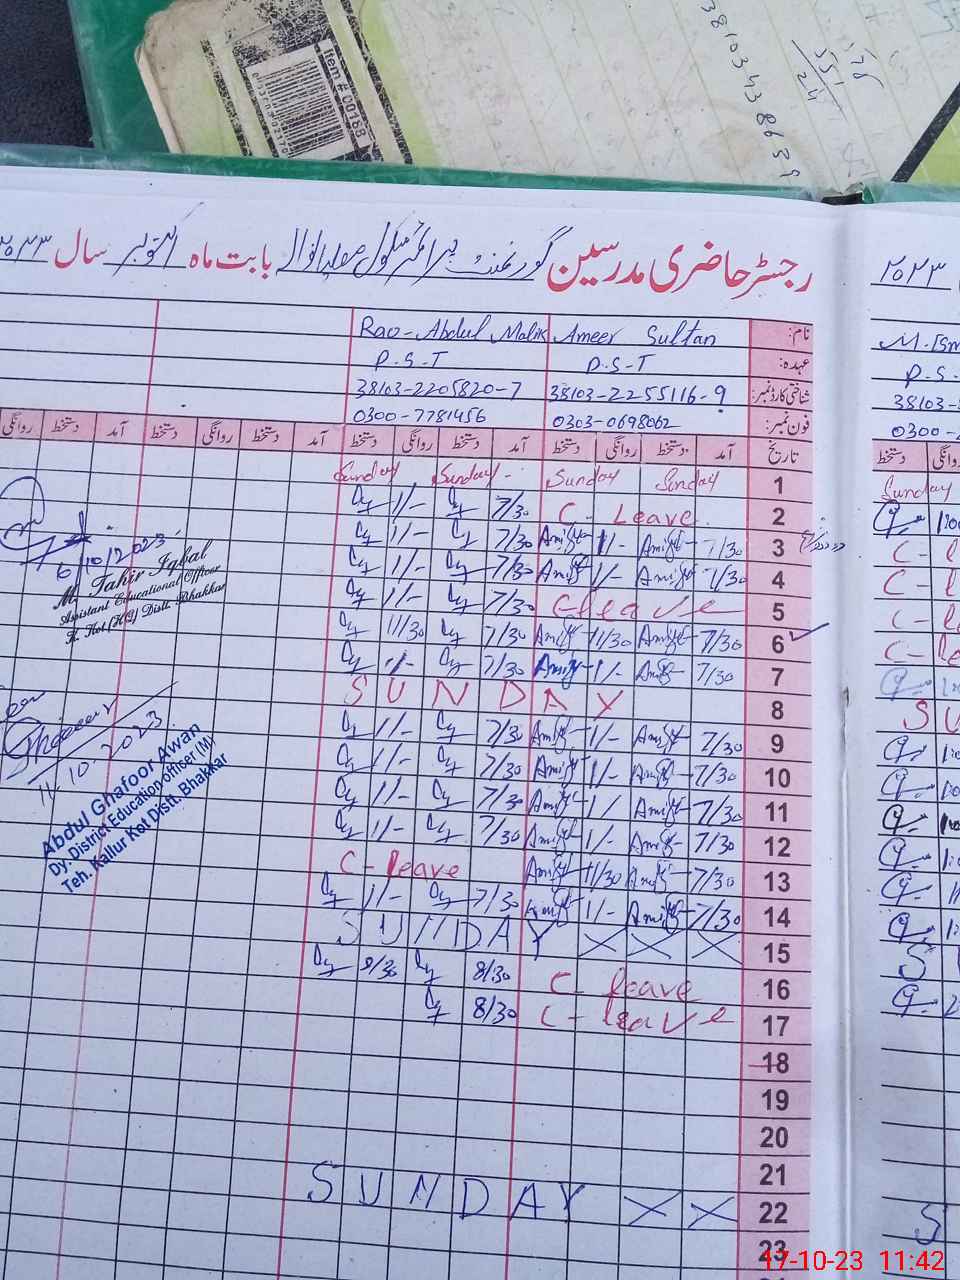 Item # 00188
3810343 8639
55
24
رجسٹر حاضری مدرسین گورنمنٹ پرائمری سکول بابت ماہ اکتوبر سال ۲۰۲۳
۲۰۲۳
نام: Ameer Sultan Rao-Abdul Malik
عہدہ: P.S.T P.S.T
شناختی کارڈ نمبر: 38103-2255116-9 38103-2205820-7
فون نمبر: 0303-0698062 0300-7781456
تاریخ آمد دستخط روانگی دستخط آمد دستخط روانگی دستخط آمد دستخط روانگی دستخط آمد دستخط روانگی
دستخط روانگی
1 Sunday Sunday Sunday Sunday
Sunday
2 C- Leave 7/30 1/-
3 7/30 1/- 7/30 1/-
4 7/30 1/- 7/30 1/-
5 C-leave 7/30 1/-
6 7/30 11/30 7/30 11/30
7 7/30 1/- 7/30 1/-
8 SUNDAY
9 7/30 1/- 7/30 1/-
10 7/30 1/- 7/30 1/-
11 7/30 1/- 7/30 1/-
12 7/30 1/- 7/30 1/-
13 7/30 11/30 C-leave
14 7/30 1/- 7/30 1/-
15 SUNDAY X X X
16 C- leave 8/30 8/30
17 C-leave 8/30
18
19
20
21
22 SUNDAY X X
23
6/10/2023
M. Tahir Iqbal
Assistant Educational Officer
K. Kot (HQ) Distt. Bhakkar
11.10.2023
Abdul Ghafoor Awan
Dy. District Education officer (M)
Teh. Kallur Kot Distt. Bhakkar
17-10-23 11:42